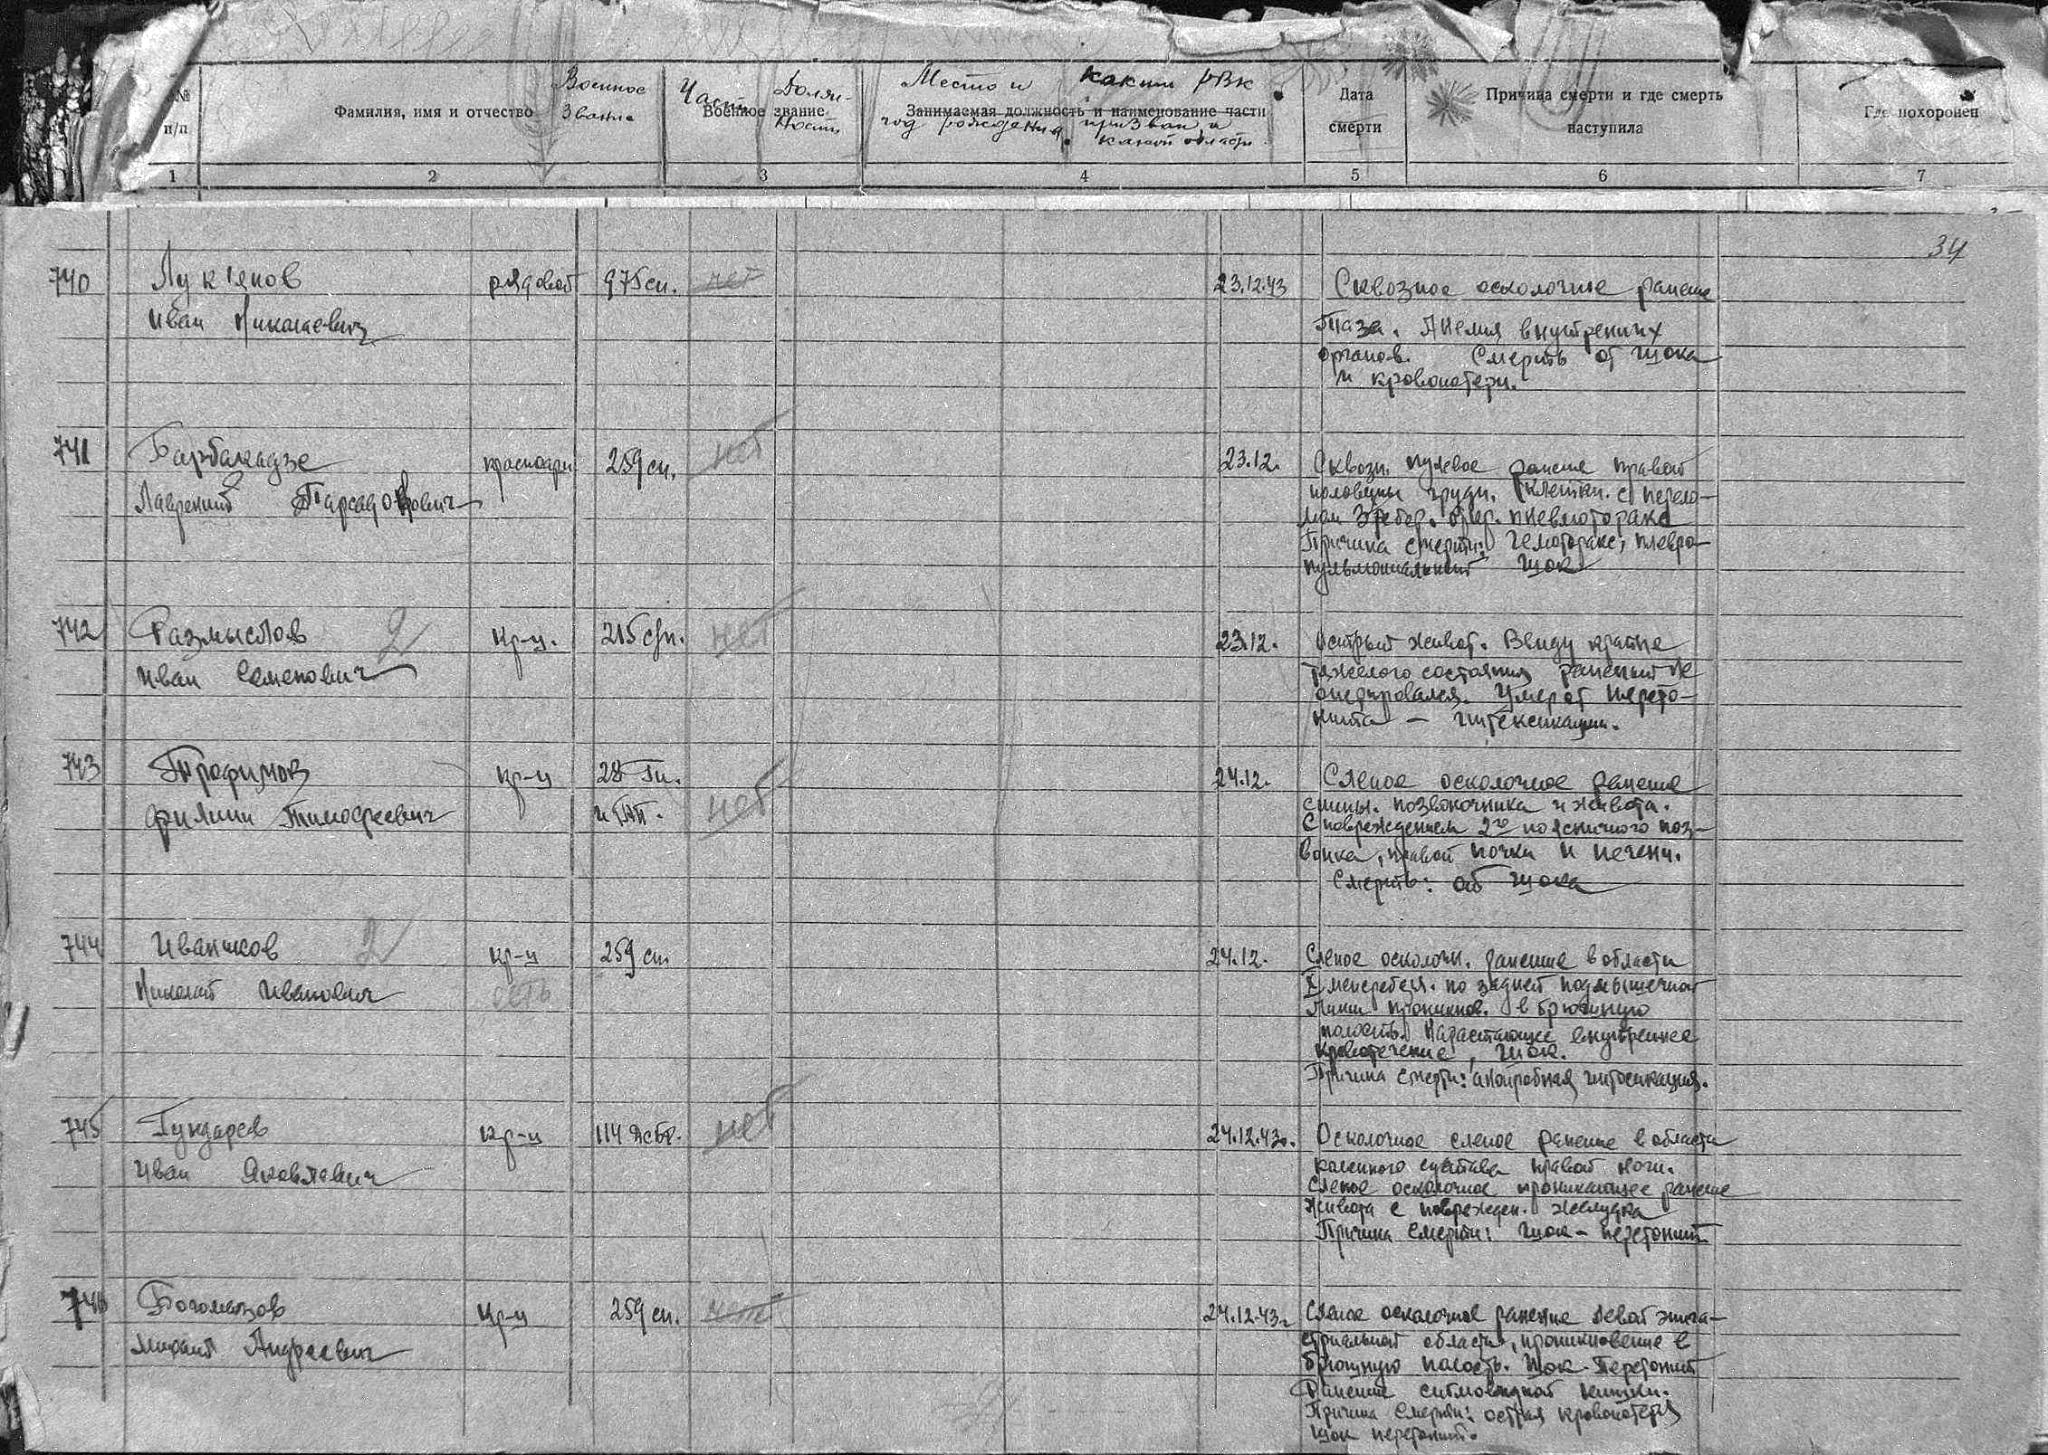 № п/п
Фамилия, имя и отчество
Военное звание
Часть
Военное звание
Должность
Место и год рождения
Каким РВК призван и какой области
Занимаемая должность и наименование части
Дата смерти
Причина смерти и где смерть наступила
Где похоронен
1 2 3 4 5 6 7
34
740 Лукъянов рядовой 975 сп. нет 23.12.43 Сквозное осколочное ранение
Иван Николаевич таза. внутрених
органов. Смерть от шока
и кровопотери.
741 красноарм 259 сп. нет 23.12. Сквозн. пулевое ранение правой
Лаврентий половины грудн. клетки. с перело-
мом ребер. пневмоторакс
Причина смерти: гемоторакс, плевро-
пульмональный шок
742 Размыслов 2 кр-ц. нет 23.12. Острый живот. Ввиду крайне
Иван Семенович тяжелого состояния раненый не
оперировался. Умер от перето-
нита – интексикации.
743 Трофимов кр-ц нет 24.12. Слепое осколочное ранение
Филипп Тимофеевич спины. позвоночника и живота.
С повреждением 2го поясничного поз-
вонка, правой почки и печени.
Смерть: от шока
744 Иванков 2 кр-ц 259 сп 24.12. Слепое осколочн. ранение в области
Николай Иванович есть по задней подмышечной
линии проникнов. в брюшную
полость. Нарастающее внутреннее
кровотечение, шок.
Причина смерти: интосикация.
745 Гундарев кр-ц нет 24.12.43г. Осколочное слепое ранение в области
Иван Яковлевич коленного сустава правой ноги.
Слепое осколочное проникающее ранение
живота с поврежден. желудка
Причина смерти: шок – перетонит
746 Богомазов кр-ц 259 сп. нет 24.12.43г. Слепое осколочное ранение левой эпига-
Михаил Андреевич стриальной области, проникновение в
брюшную полость. Шок – Перетонит
Ранение сигмовидной кишки.
Причина смерти: острая кровопотеря
шок перетонит.